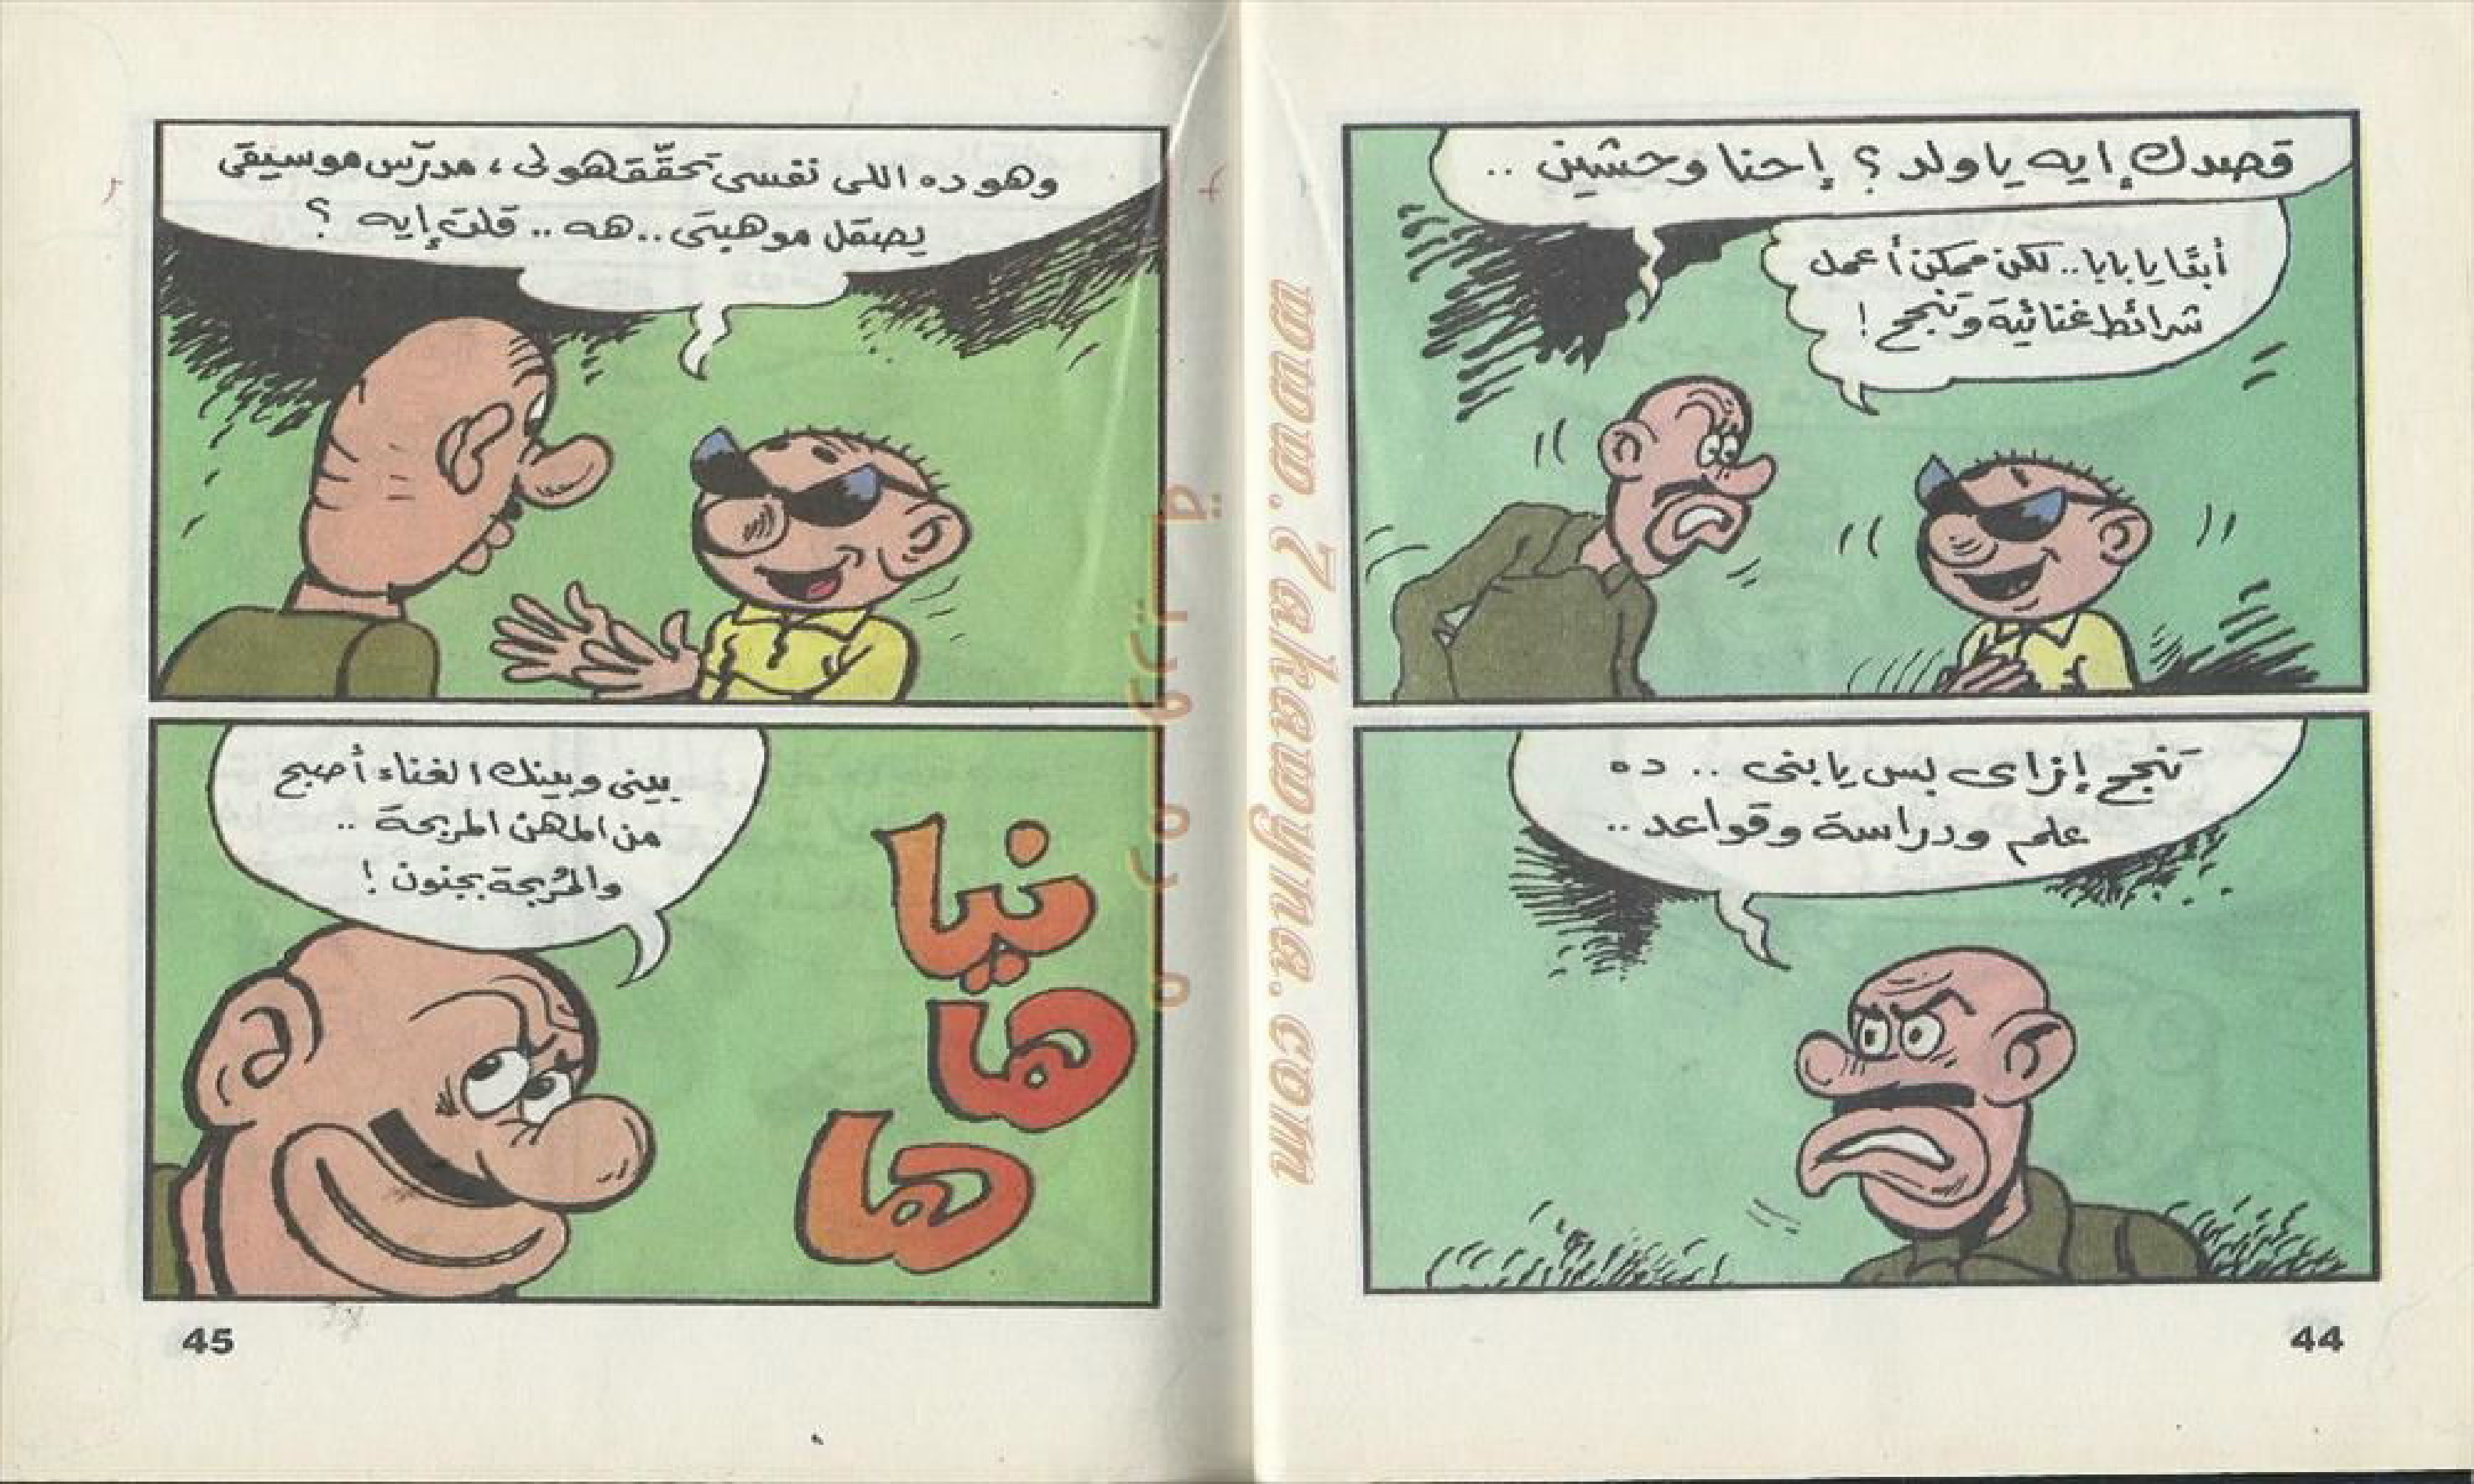 قصدك إيه ياولد ؟ إحنا وحشين ..
أبدًا يا بابا .. لكن ممكن أعمل
شرائط غنائية وتنجح !
تنجح إزاى بس يا بنى .. ده
علم ودراسة وقواعد ..
44
وهو ده اللى نفسى تحقّقهولى ، مدرّس موسيقى
يصقل موهبتى .. هه .. قلت إيه ؟
بينى وبينك الغناء أصبح
من المهن المربحة ..
والمُربحة بجنون !
نيا
ها
ها
45
www.Zakawyna.com